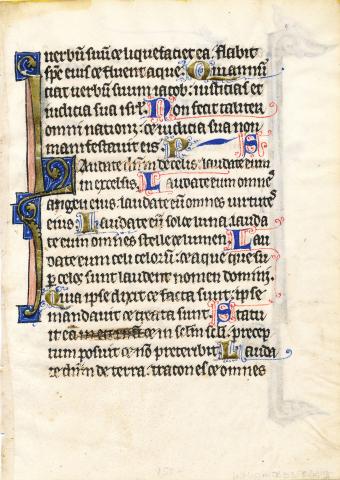 uerbũ suũ ⁊ liquefaciet ea. flabit
spc̃ eius ⁊ fluent aque. Qui annũ
ciat uerbũ suum iacob: iusticias et
iudicia sua isrl̃. Non fecit taliter
omni nationi: ⁊ iudicia sua non
manifestauit eis. P̃ S
Laudate dñm de celis: laudate eum
in excelsis. Laudate eum omnes
angeli eius: laudate eum omnes uirtutes
eius. Laudate eũ sol ⁊ luna: lauda
te eum omnes stelle ⁊ lumen. Lau
date eum celi celorũ: ⁊ aque que su
p celos sunt laudent nomen domini.
Quia ipse dixit ⁊ facta sunt: ipse
mandauit ⁊ creata sunt. Statu
it ea ⁊ in sclm̃ scli: precep
tum posuit ⁊ nõ preteribit. Lauda
te dñm de terra: dracones ⁊ omnes